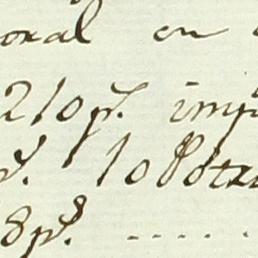 oral en
210 p.s imp
p.s 10 8 otra
8 p.s .....